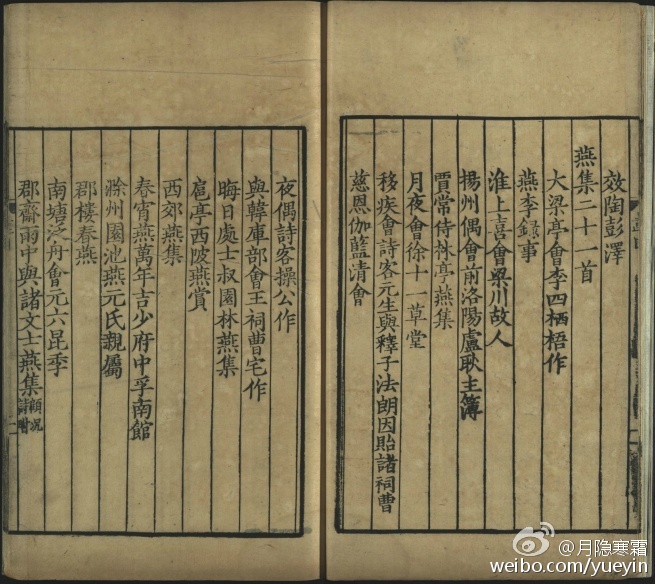 效陶彭澤
燕集二十一首
大梁亭會李四栖梧作
燕李錄事
淮上喜會梁川故人
揚州偶會前洛陽盧耿主簿
賈常侍林亭燕集
月夜會徐十一草堂
移疾會詩客元生與釋子法朗因貽諸祠曹
慈恩伽藍清會
夜偶詩客操公作
與韓庫部會王祠曹宅作
晦日處士叔園林燕集
扈亭西陂燕賞
西郊燕集
春宵燕萬年吉少府中孚南館
滁州園池燕元氏親屬
郡樓春燕
南塘泛舟會元六昆季
郡齋雨中與諸文士燕集
@月隐寒霜
weibo.com/yueyin